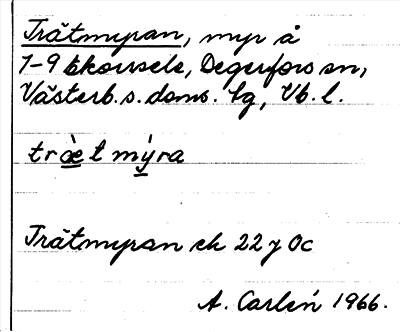 Trätmyran, myr å
7-9 Ekorrsele, Degerfors sn,
Västerb. s. doms. tg, Vb. l.
træ̀t mýra
Trätmyran ek 22 y 0c
A. Carlén 1966.